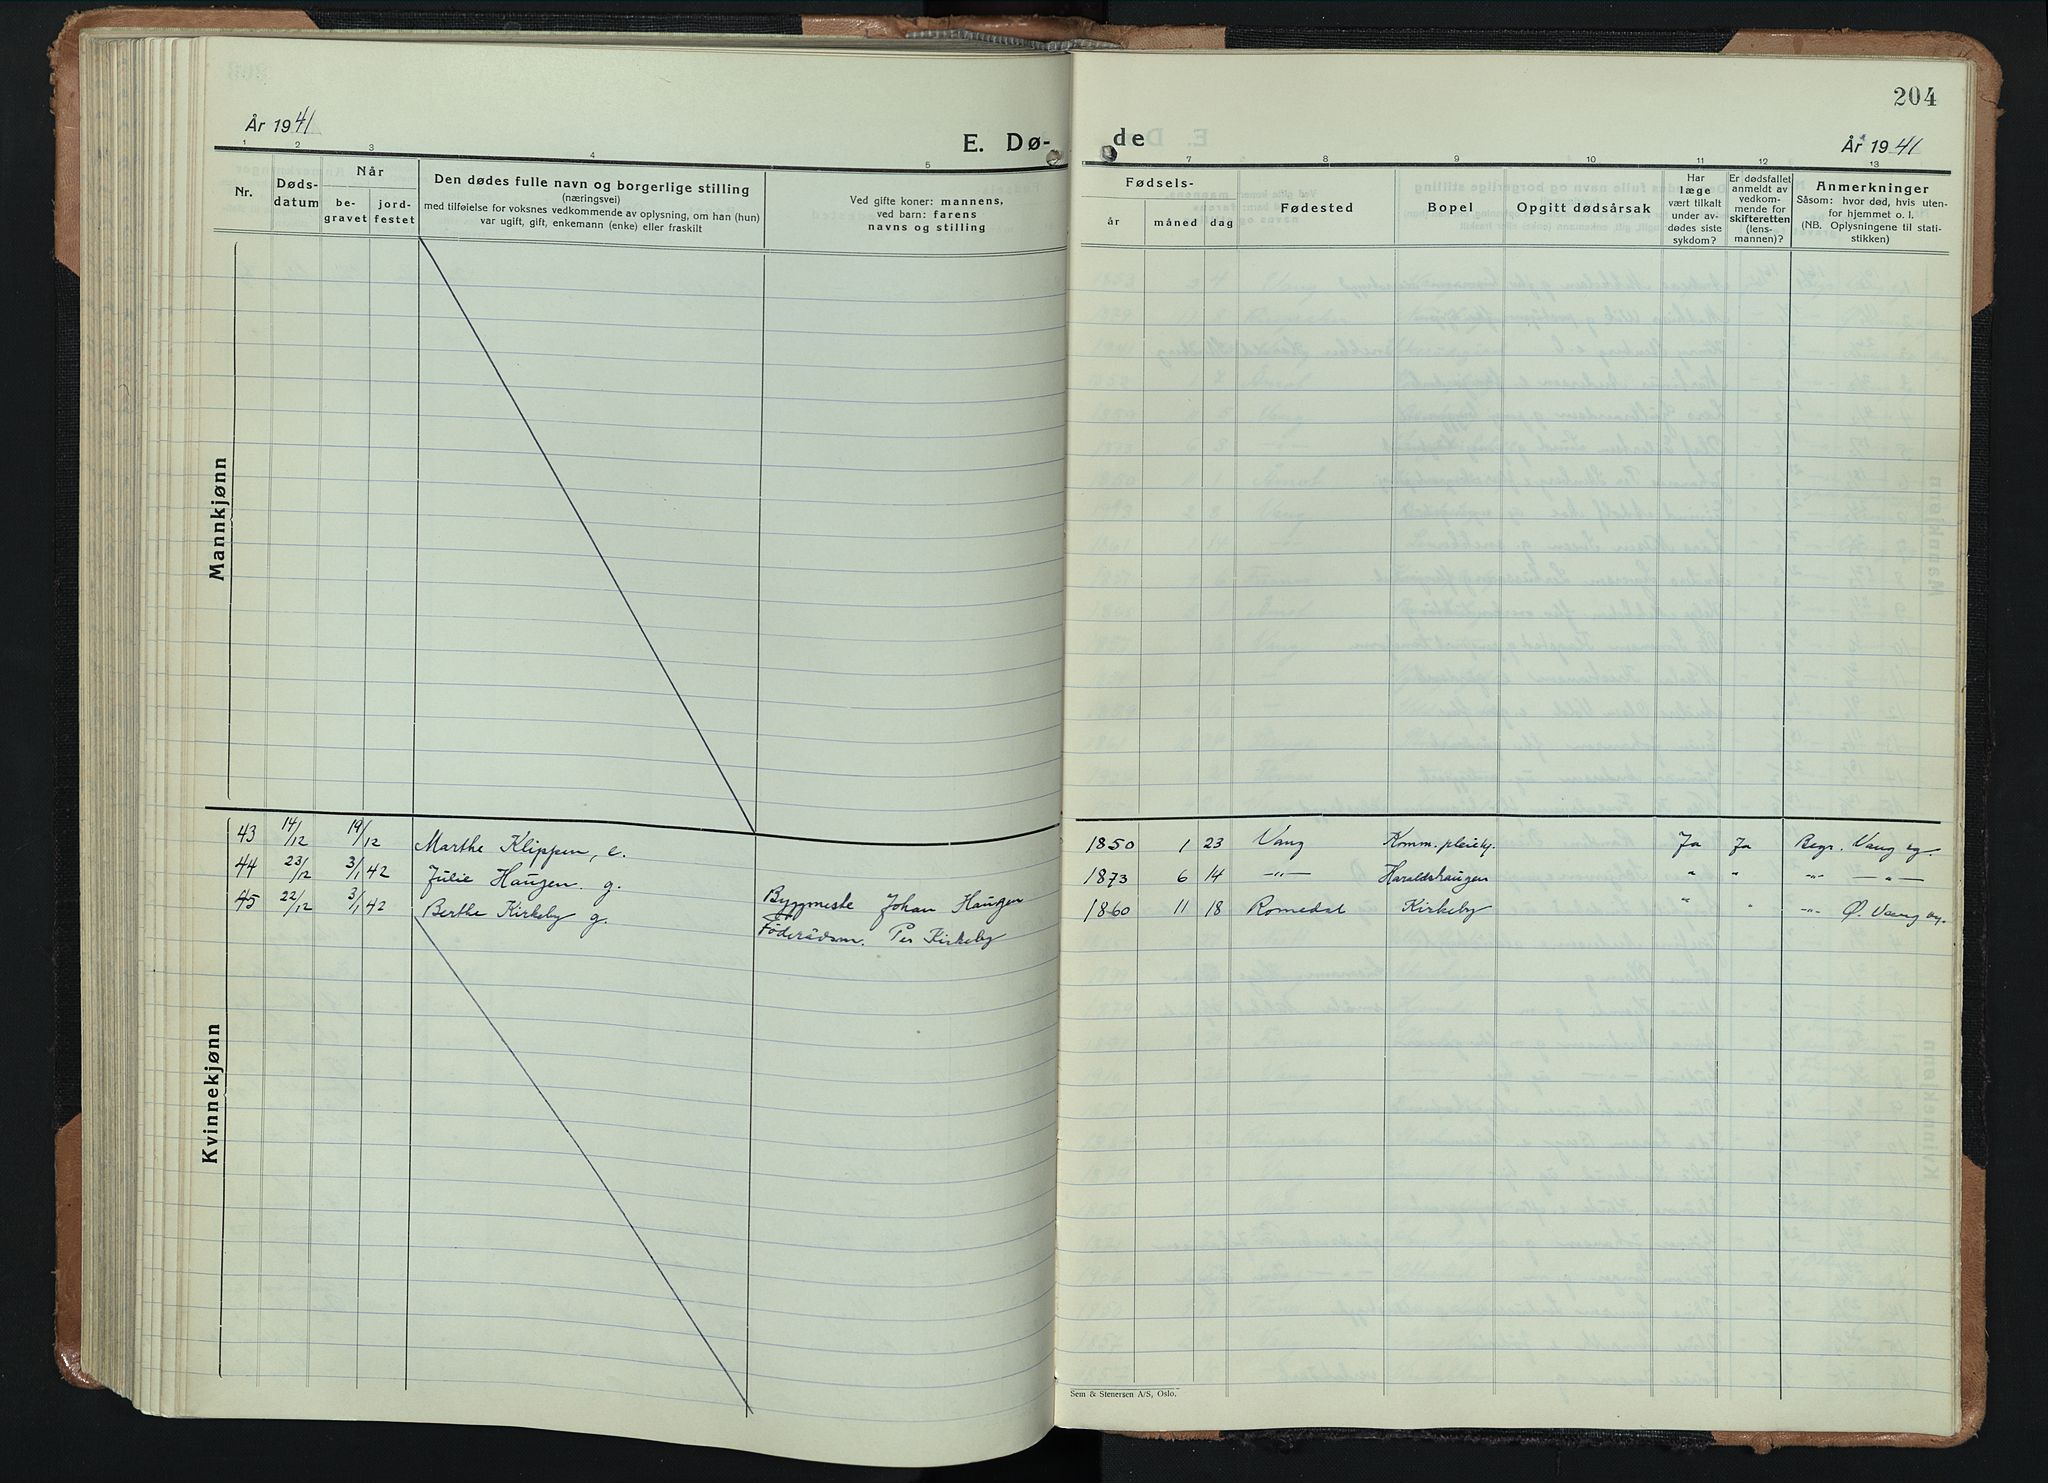 204
År 1941
E. Dø-
de
År 1941
1 2 3 4 5
7 8 9 10 11 12 13
Nr.
Døds-
datum
Når
be-
gravet
jord-
festet
Den dødes fulle navn og borgerlige stilling
(næringsvei)
med tilføielse for voksnes vedkommende av oplysning, om han (hun)
var ugift, gift, enkemann (enke) eller fraskilt
Ved gifte koner: mannens,
ved barn: farens
navns og stilling
Fødsels-
år måned dag
Fødested
Bopel
Opgitt dødsårsak
Har
læge
vært tilkalt
under av-
dødes siste
sykdom?
Er dødsfallet
anmeldt av
vedkom-
mende for
skifteretten
(lens-
mannen)?
Anmerkninger
Såsom: hvor død, hvis uten-
for hjemmet o. l.
(NB. Oplysningene til stati-
stikken)
Mannkjønn
Kvinnekjønn
43 14/12 19/12 Marthe Klippen, e. 1850 1 23 Vang Komm. pleiehj. Ja Ja Begr. Vang kg.
44 23/12 3/1 42 Julie Haugen. g. Byggmeste Johan Haugen 1873 6 14 -"- Haraldshaugen " " -"- -"-
45 22/12 3/1 42 Berthe Kirkeby g. Föderådsm. Per Kirkeby 1860 11 18 Romedal Kirkeby " " -"- Ø. Vang
Sem & Stenersen A/S, Oslo.